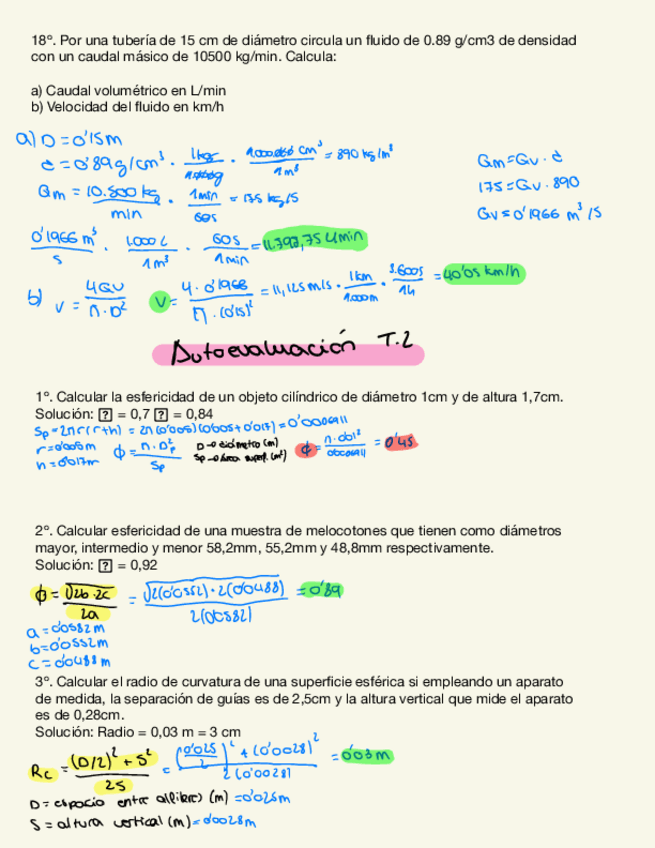 18°. Por una tubería de 15 cm de diámetro circula un fluido de 0.89 g/cm3 de densidad
con un caudal másico de 10500 kg/min. Calcula:
a) Caudal volumétrico en L/min
b) Velocidad del fluido en km/h
a) D = 0'15m
d = 0'89 g/cm³ · 1kg/1000g · 1.000.000 cm³/1m³ = 890 kg/m³
Qm = 10.500 kg/min · 1min/60s = 175 kg/s
Qm = Qv · d
175 = Qv · 890
Qv = 0'1966 m³/s
0'1966 m³/s · 1.000 L/1m³ · 60s/1min = 11.797,75 L/min
b) v = 4Qv/π·D² v = 4·0'1966/π·(0'15)² = 11,125 m/s · 1km/1.000m · 3.600s/1h = 40'05 km/h
Autoevaluación T.2
1°. Calcular la esfericidad de un objeto cilíndrico de diámetro 1cm y de altura 1,7cm.
Solución: [?] = 0,7 [?] = 0,84
Sp = 2πr(r+h) = 2π(0'005)(0'005+0'017) = 0'0006911
r = 0'005m
h = 0'017m
ϕ = π·Dp²/Sp
D → diámetro (m)
Sp → área superf. (m²)
ϕ = π·0'01²/0'0006911 = 0'45
2°. Calcular esfericidad de una muestra de melocotones que tienen como diámetros
mayor, intermedio y menor 58,2mm, 55,2mm y 48,8mm respectivamente.
Solución: [?] = 0,92
ϕ = √2b·2c/2a = √2(0'0552)·2(0'0488)/2(0'0582) = 0'89
a = 0'0582 m
b = 0'0552 m
c = 0'0488 m
3°. Calcular el radio de curvatura de una superficie esférica si empleando un aparato
de medida, la separación de guías es de 2,5cm y la altura vertical que mide el aparato
es de 0,28cm.
Solución: Radio = 0,03 m = 3 cm
Rc = (D/2)² + S²/2S = (0'025/2)² + (0'0028)²/2(0'0028) = 0'03m
D = espacio entre (m) = 0'025m
S = altura vertical (m) = 0'0028m